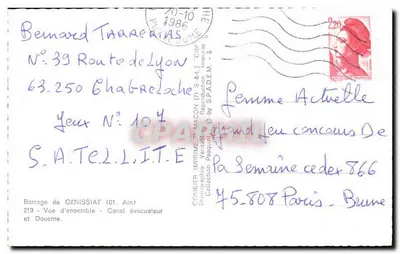 20-10
1986
2,20
Bernard Tarrerias
N° 39 Route de Lyon
63.250 Chabreloche
Jeux N° 107
S.A.T.E.L.L.I.T.E
Femme Actuelle
Grand Jeu concours De
La Semaine cedex 866
75.808 Paris - Brune
Barrage de GENISSIAT (01. Ain)
219 - Vue d'ensemble - Canal évacuateur
et Douane.
COMBIER IMPRIMEUR MACON